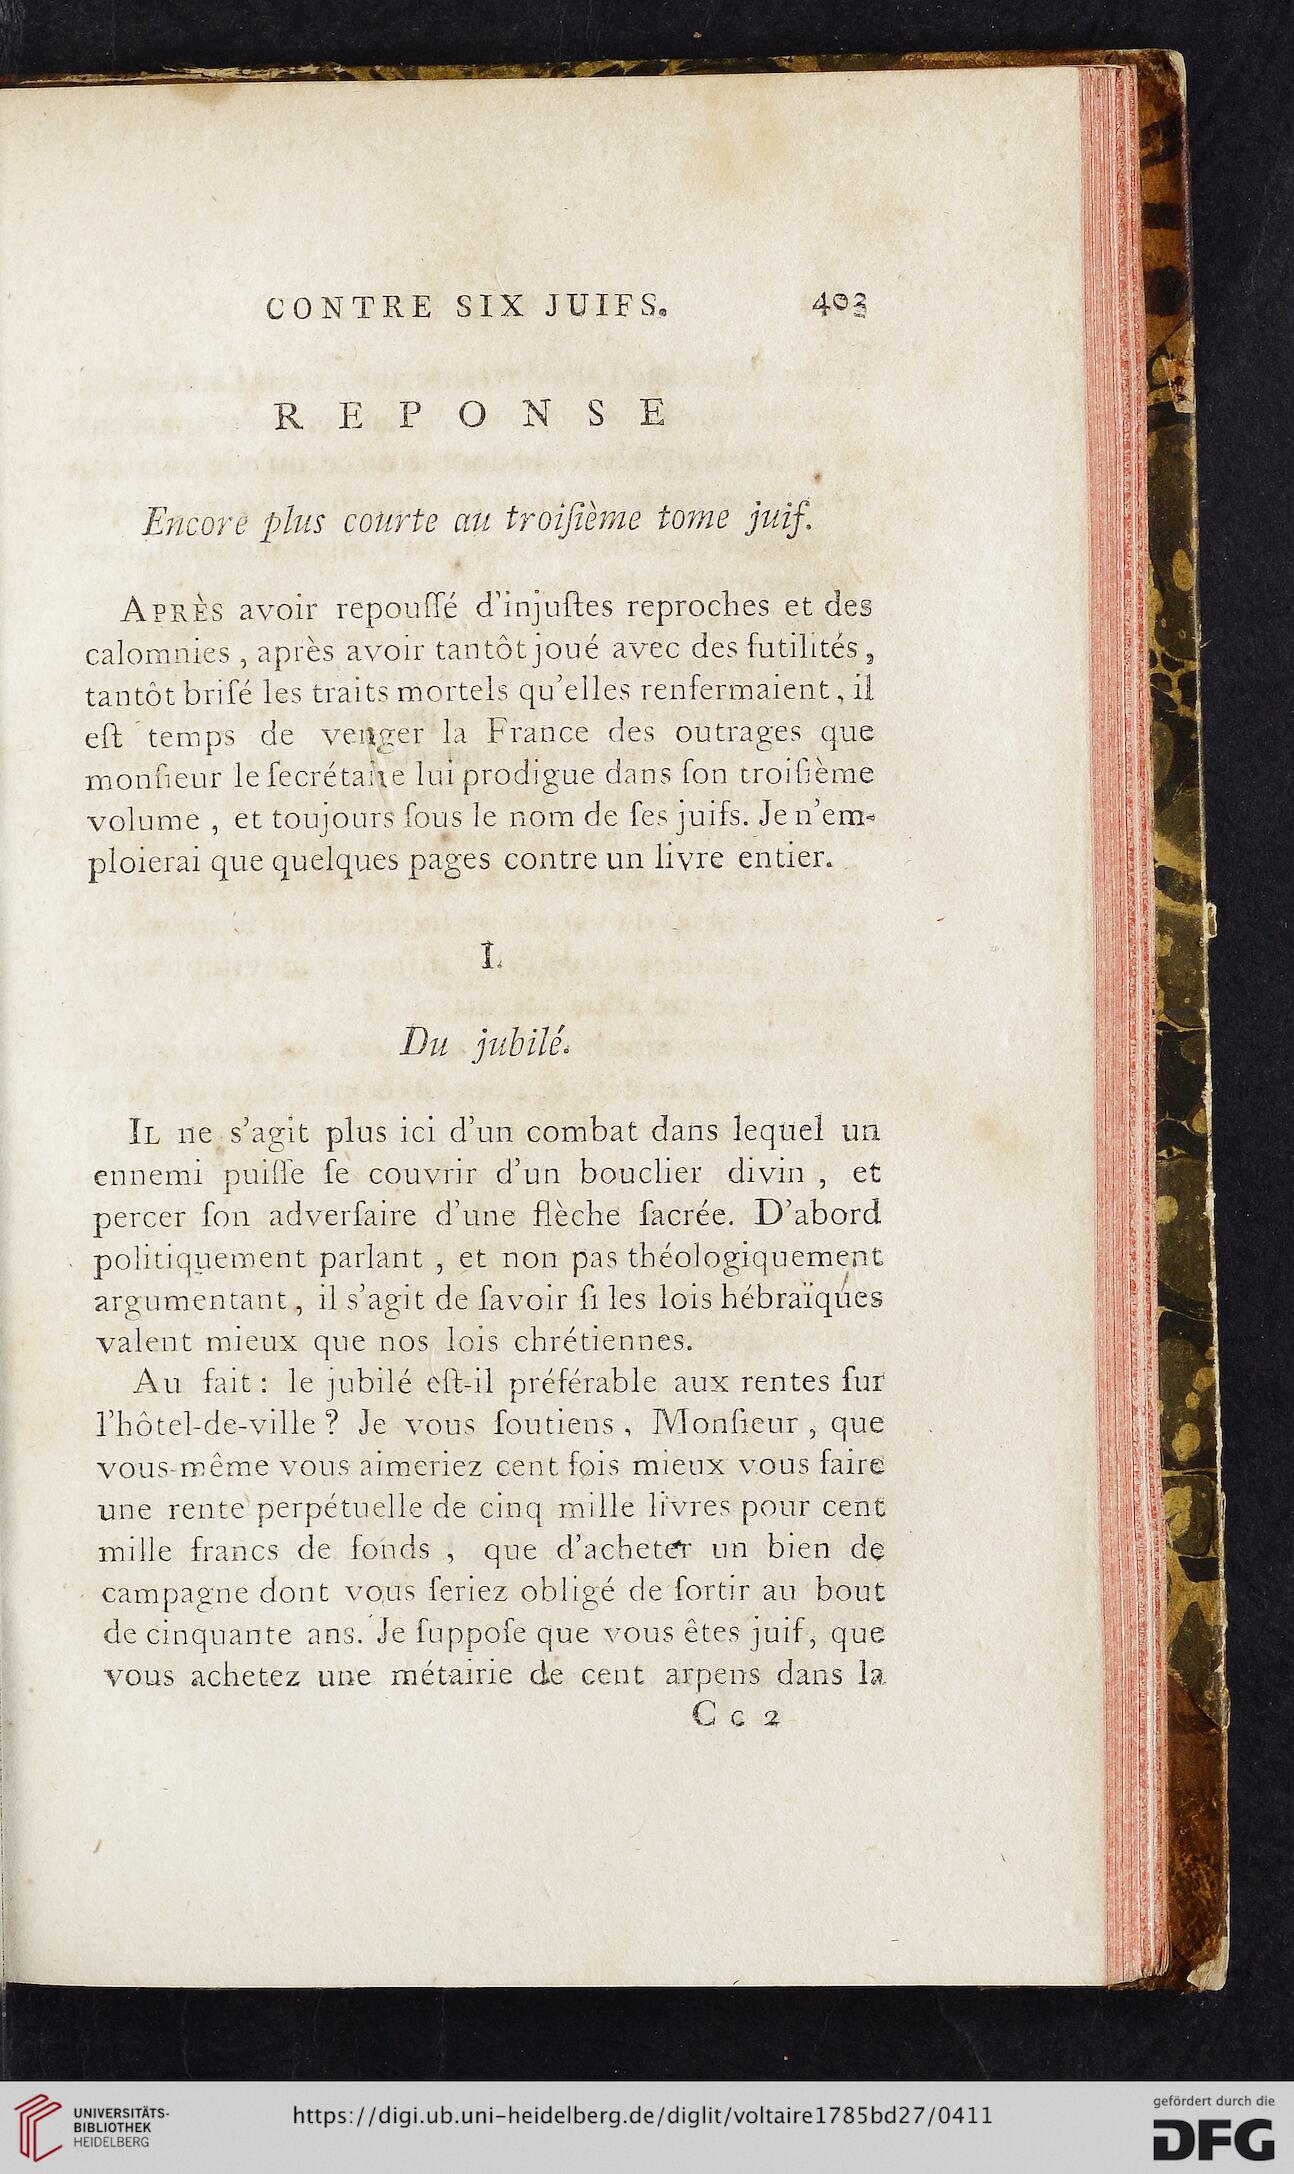 CONTRE SIX JUIFS. 403
REPONSE
Encore plus courte au troiſième tome juif.
APRÈS avoir repouſſé d'injuſtes reproches et des
calomnies , après avoir tantôt joué avec des futilités ,
tantôt briſé les traits mortels qu'elles renfermaient , il
eſt temps de venger la France des outrages que
monſieur le ſecrétaire lui prodigue dans ſon troiſième
volume , et toujours ſous le nom de ſes juifs. Je n'em-
ploierai que quelques pages contre un livre entier.
I.
Du jubilé.
IL ne s'agit plus ici d'un combat dans lequel un
ennemi puiſſe ſe couvrir d'un bouclier divin , et
percer ſon adverſaire d'une flèche ſacrée. D'abord
politiquement parlant , et non pas théologiquement
argumentant , il s'agit de ſavoir ſi les lois hébraïques
valent mieux que nos lois chrétiennes.
Au fait : le jubilé eſt-il préférable aux rentes ſur
l'hôtel-de-ville ? Je vous ſoutiens , Monſieur , que
vous-même vous aimeriez cent fois mieux vous faire
une rente perpétuelle de cinq mille livres pour cent
mille francs de fonds , que d'acheter un bien de
campagne dont vous ſeriez obligé de ſortir au bout
de cinquante ans. Je ſuppoſe que vous êtes juif, que
vous achetez une métairie de cent arpens dans la
C c 2
UNIVERSITÄTS-
BIBLIOTHEK
HEIDELBERG
https://digi.ub.uni-heidelberg.de/diglit/voltaire1785bd27/0411
gefördert durch die
DFG